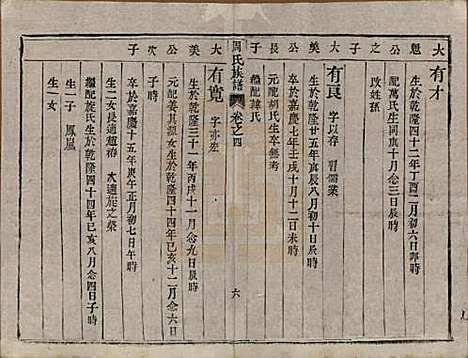 大魁公之子
有才
生於乾隆四十二年丁酉二月初六日卯時
配萬氏生同庚十月念三日辰時
改姓孫
大美公長子
有良 字以存 習儒業
生於乾隆廿五年庚辰八月初十日辰時
卒於嘉慶七年壬戌十月十二日未時
元配胡氏生卒無考
繼配韓氏
周氏族譜 卷之四 六
大美公次子
有寬 字亦宏
生於乾隆三十一年丙戌十一月念九日辰時
元配姜其淑女生於乾隆四十四年己亥十二月念六日
卒於嘉慶十五年庚午正月初七日午時
生一女長適趙 次適族之榮
繼配施氏生於乾隆四十四年己亥八月念四日子時
生一子 鳳鳳
生一女